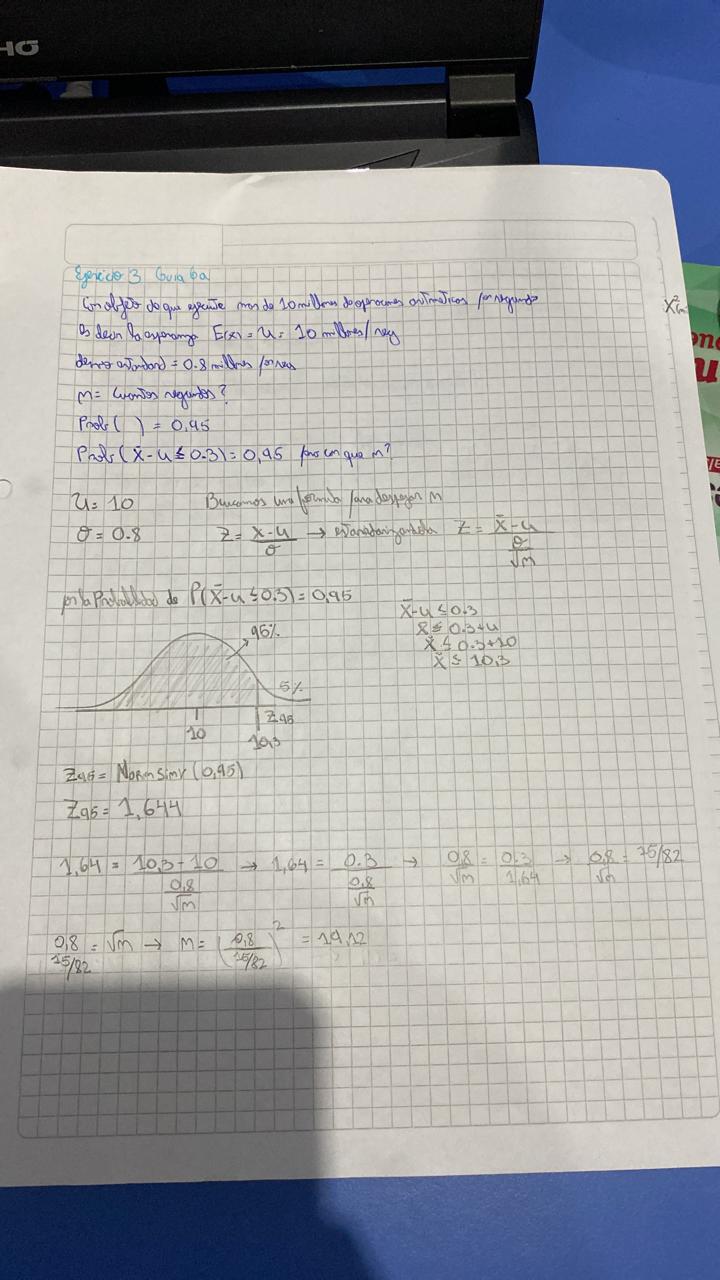 HO
Ejercicio 3 Guia 6a
Con objeto de que ejecute mas de 10 millones de operaciones aritmeticas por segundo
es decir la esperanza E(x) = u = 10 millones/seg
desvio estandard = 0.8 millones por seg
n = Cuantos segundos?
Prob( ) = 0,95
Prob(x̄ - u ≤ 0.3) = 0,95 para con que n?
u = 10 Buscamos una formula para despejar n
σ = 0.8 Z = x-u/σ → estandarizandola Z = x̄-u/(σ/√n)
por la Probabilidad de P(x̄-u ≤ 0.3) = 0,95
x̄-u ≤ 0.3
x̄ ≤ 0.3+u
x̄ ≤ 0.3+10
x̄ ≤ 10,3
95%
5%
Z95
10
10,3
Z95 = (0,95)
Z95 = 1,644
1,64 = (10,3-10)/(0,8/√n) → 1,64 = 0.3/(0,8/√n) → 0,8/√n = 0.3/1,64 → 0,8/√n = 15/82
0,8/(15/82) = √n → n = (0,8/(15/82))² = 19,12